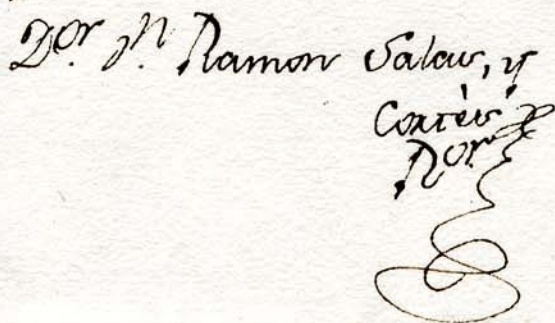 Dor. Dn. Ramon Salas, y
Cortés
Ror.